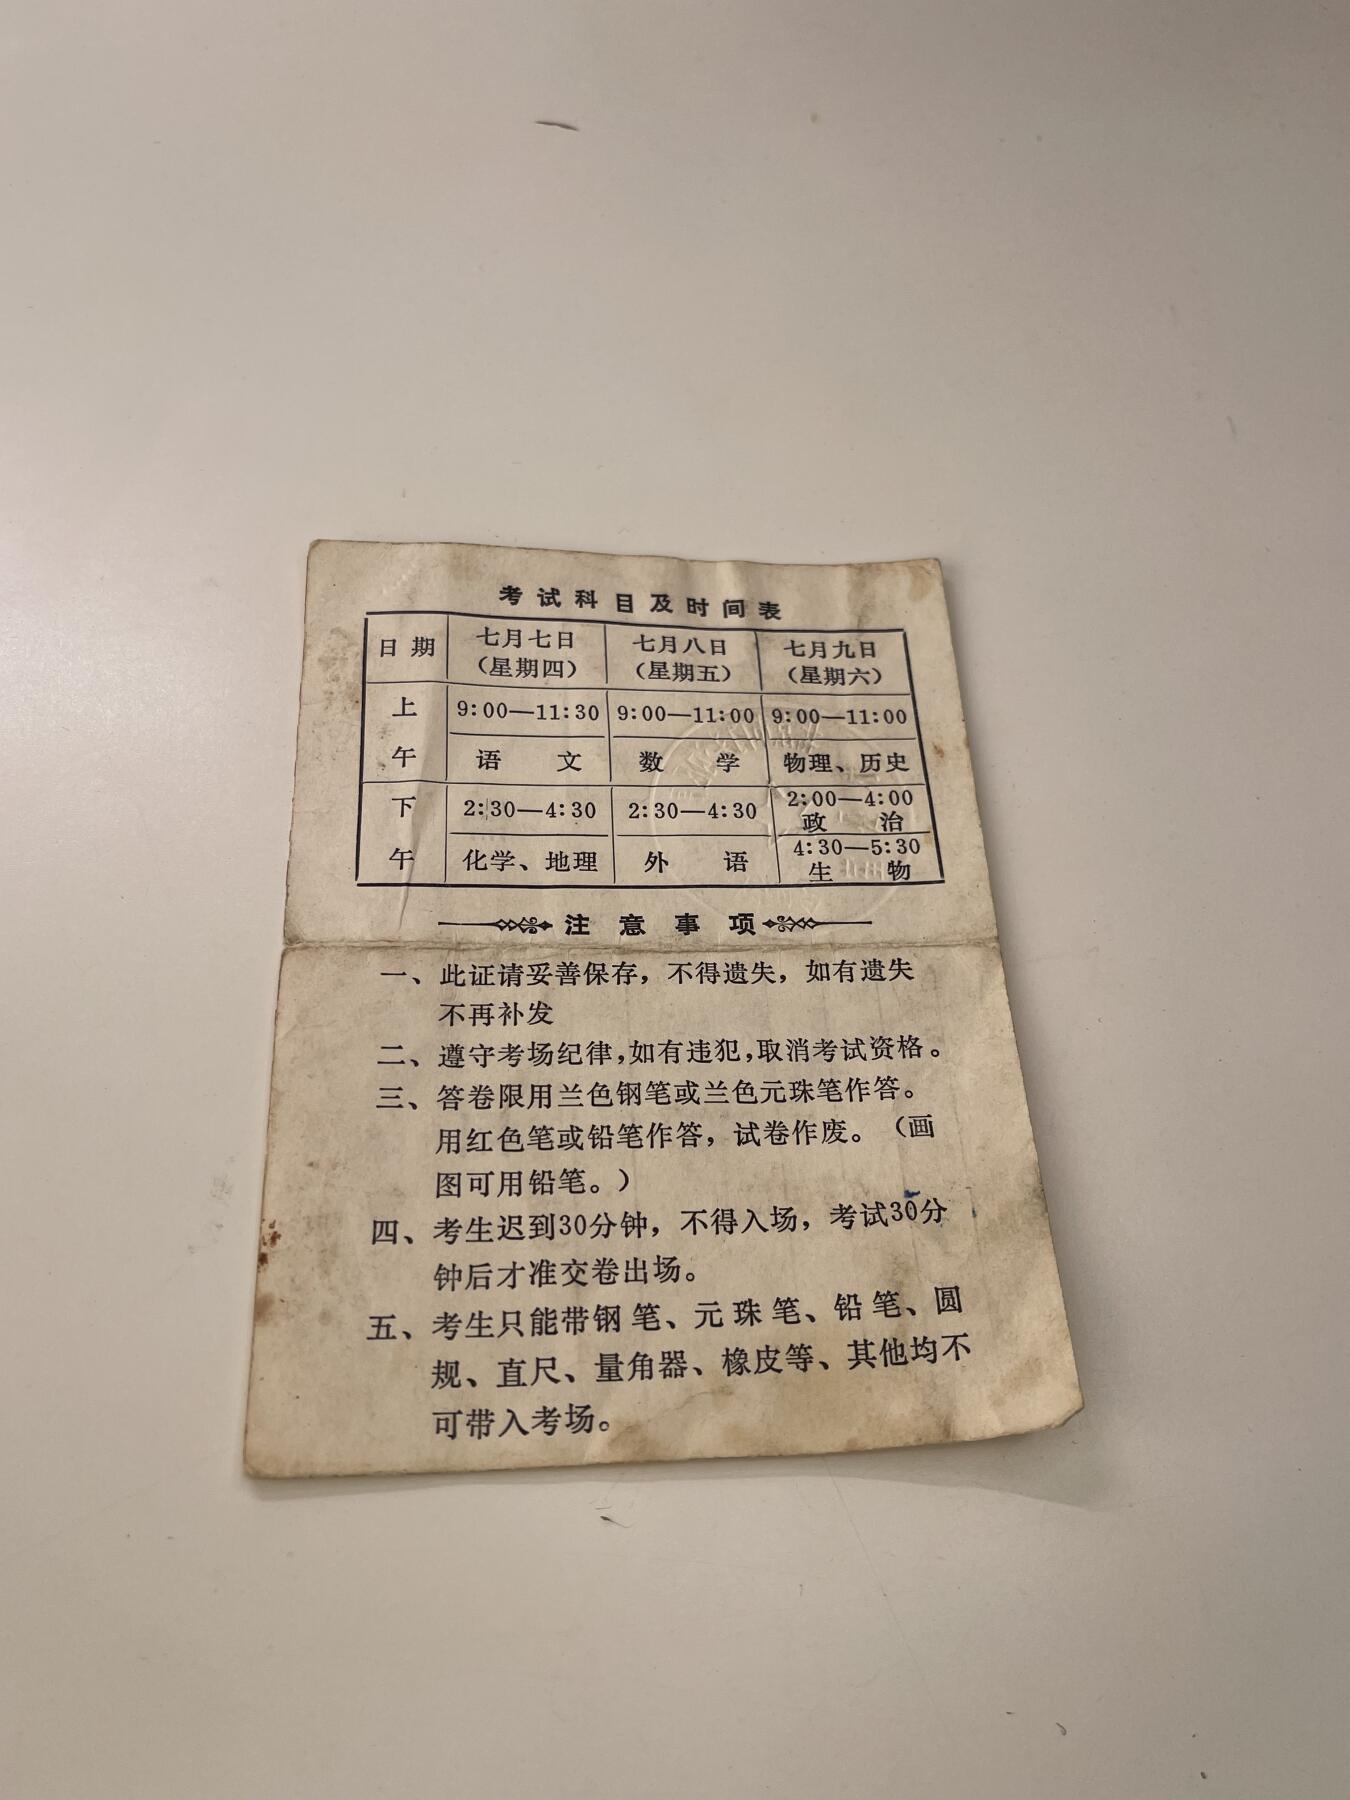 考试科目及时间表
日期 七月七日 七月八日 七月九日
(星期四) (星期五) (星期六)
上午 9:00—11:30 9:00—11:00 9:00—11:00
语文 数学 物理、历史
下午 2:30—4:30 2:30—4:30 2:00—4:00
政治
化学、地理 外语 4:30—5:30
生物
注意事项
一、此证请妥善保存，不得遗失，如有遗失
不再补发
二、遵守考场纪律，如有违犯，取消考试资格。
三、答卷限用兰色钢笔或兰色元珠笔作答。
用红色笔或铅笔作答，试卷作废。（画
图可用铅笔。）
四、考生迟到30分钟，不得入场，考试30分
钟后才准交卷出场。
五、考生只能带钢笔、元珠笔、铅笔、圆
规、直尺、量角器、橡皮等、其他均不
可带入考场。